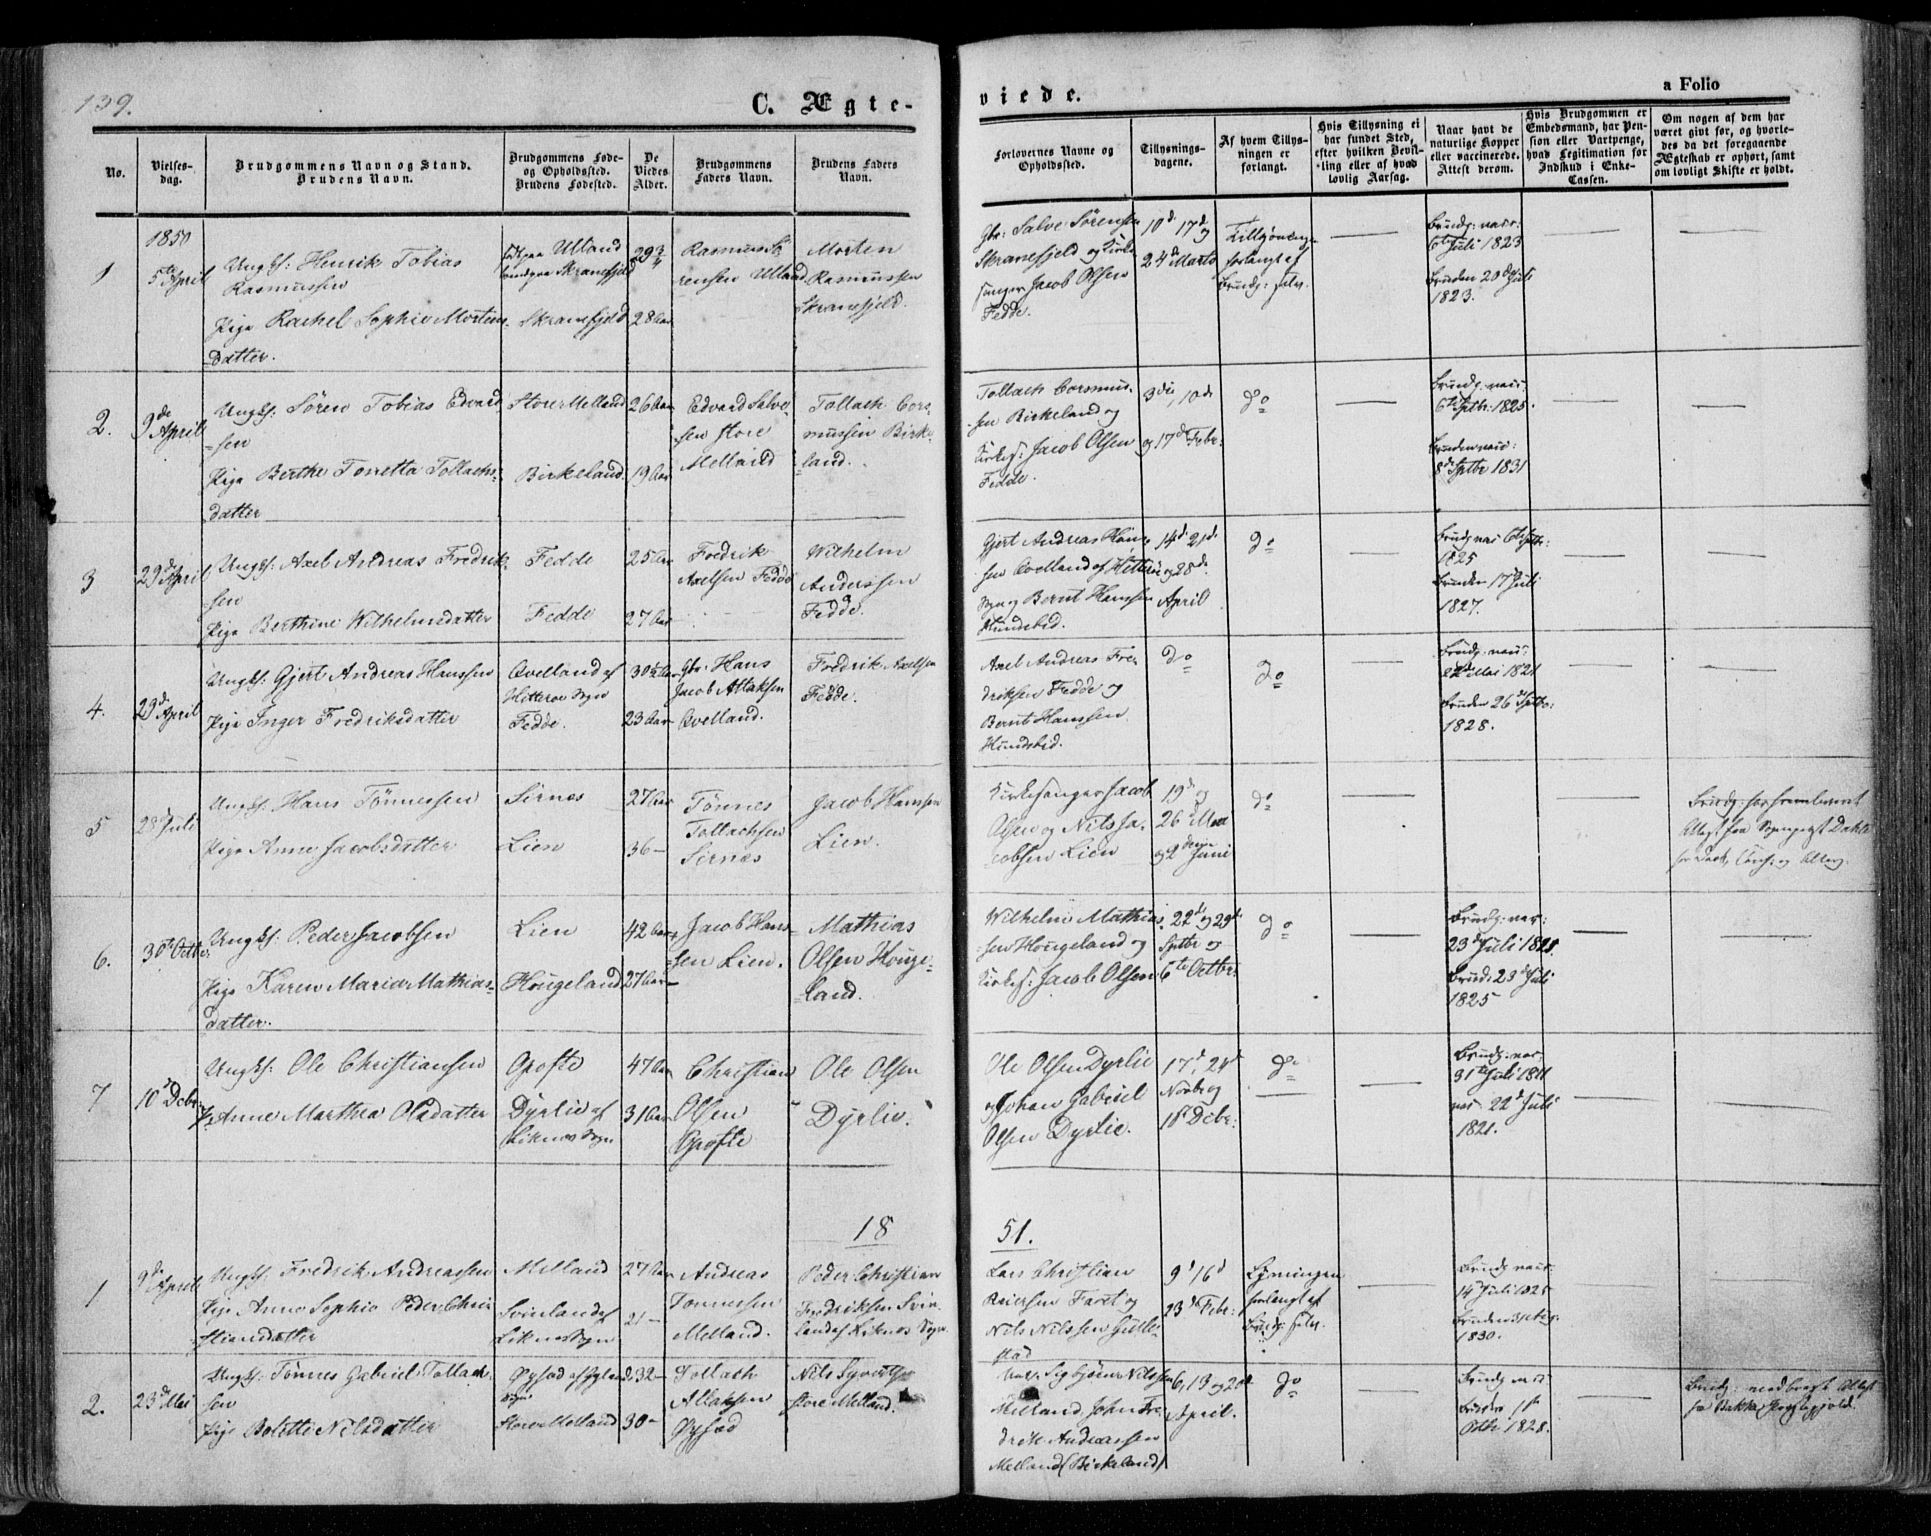 139.
C. Ægte-
viede.
a Folio
No.
Vielses-
dag.
Brudgommens Navn og Stand.
Brudens Navn.
Brudgommens Føde-
og Opholdssted.
Brudens Fødested.
De
Viedes
Alder.
Brudgommens
Faders Navn.
Brudens Faders
Navn.
Forlovernes Navne og
Opholdssted.
Tillysnings-
dagene.
Af hvem Tillys-
ningen er
forlangt.
Hvis Tillysning ei
har fundet Sted,
efter hvilken Bevil-
ling eller af hvad
lovlig Aarsag.
Naar havt de
naturlige Kopper
eller vaccinerede.
Attest derom.
Hvis Brudgommen er
Embedsmand, har Pen-
sion eller Vartpenge,
hvad Legitimation for
Indskud i Enke-
Cassen.
Om nogen af dem har
været givt før, og hvorle-
des da det foregaaende
Ægteskab er ophørt, samt
om lovligt Skifte er holdt.
1850
1
5te April
Ungk: Henrik Tobias
Rasmussen
Pige Rachel Sophie Mortens-
datter.
født paa Utland
Skranefjeld
Skranefjeld
29 3/4
28 Aar
Rasmus Sø-
rensen Utland
Morten
Rasmussen
Skranefjeld.
Gbr: Salve Sørensen
Skranefjeld og Kirke-
sanger Jacob Olsen
Fedde.
10d 17d og
24d Marts
forlangt af
Brudg: selv.
Brudg: vacc:
6te Juli 1823
Bruden 20de Juli
1823.
2.
9de April
Ungk: Sören Tobias Edvard-
sen
Pige Berthe Torretta Tollachs-
datter
Store Melland
Birkeland
26 Aar
19 Aar
Edvard Salve-
sen store
Melland
Tollach Cors-
mussen Birke-
land.
Tollach Corsmus-
sen Birkeland og
Kirkes: Jacob Olsen
Fedde.
3die, 10de
og 17de Febr:
do
Brudg: vacc:
6te Sptbr: 1825.
Bruden vacc:
8de Sptbr 1831
3
29de April
Ungk: Axel Andreas Fredrik-
sen
Pige Berthine Wilhelmsdatter
Fedde
Fedde
25 Aar
27 Aar
Fredrik
Axelsen Fedde
Wilhelm
Anderssen
Fedde.
Gjert Andreas Han-
sen Qvelland af Hitterø
Sogn og Bernt Hanssen
Hundsbed.
14d 21d
og 28de
April
do
Brudg vac 6te Sptbr:
1825
Bruden 17de Juli
1827.
4.
29de April
Ungk: Gjert Andreas Hanssen
Pige Inger Fredriksdatter
Qvelland af
Hitterøe Sogn
Fedde.
30 1/2 Aar
23 Aar
Gbr: Hans
Jacob Atlaksen
Qvelland.
Fredrik Axelsen
Fedde.
Axel Andreas Fre-
driksen Fedde og
Bernt Hanssen
Hundsbed.
do
do
Brudg: vacc:
22de Mai 1821
Bruden 26de Sptbr:
1828.
5
28de Juli
Ungk: Hans Tønnessen
Pige Anne Jacobsdatter
Sirnes
Lien
27 Aar
36 —
Tønnes
Tollachsen
Sirnes
Jacob Hanssen
Lien.
Kirkesanger Jacob
Olsen og Nils Ja-
cobsen Lien
19d og
26 Mai
og 2den Juni
do
Brudg: har fremleveret
Attest fra Sognepræst Dahl
for Daab, Conf: og
6.
30te Octbr:
Ungk: Peder Jacobsen
Pige Karen Maria Mathias-
datter.
Lien
Hougeland
42 Aar
27 Aar
Jacob Hans-
sen Lien.
Mathias
Olsen Houge-
land.
Wilhelm Mathias-
sen Hougeland og
Kirkes: Jacob Olsen
22de og 29de
Sptbr og
6te Octbr:
do
Brudg: vac:
23de Juli
Brud: 23de Juli
1825
7
10de Debr:
Ungk: Ole Christiansen
P. Anne Marthea Olsdatter
Opofte
Dyrlie af
Liknes Sogn
47 Aar
31 Aar
Christian
Olsen
Opofte
Ole Olsen
Dyrlie.
Ole Olsen Dyrlie
og Johan Gabriel
Olsen Dyrlie.
17d, 24d
Novbr og
1st Debr:
do
Brudg: vac:
31te Juli 1811
vac: 22de Juli
1821.
18
51.
1
9de April
Ungk: Fredrik Andreassen
Pige Anne Sophie Peder Chri-
stiansdatter
Melland
Svinland af
Liknes Sogn
27 Aar
21 —
Andreas
Tønnessen
Melland.
Peder Christian
Fredriksen Svin-
land af Liknes Sogn
Lars Christian
Reiersen Faret og
Nils Nilssen Gulle-
stad
9d 16d
23de Febr:
Lysningen
forlangt af
Brudg: selv.
Brudg: vacc:
14de Juli 1825
Bruden
1830.
2.
23de Mai
Ungk: Tønnes Gabriel Tollach-
sen
Pige Bolette Nilsdatter
Sogn
Store Melland
32 —
30 —
Tollach
Atlaksen
Nils
store Melland.
Sigbjørn Nilssen
Melland, John Fre-
drik Andreassen
Melland (Birkeland)
6, 13 og 20de
April.
do
Brudg
Bruden 1st
Octbr 1828.
Brudg: medbragt Attest
fra Bakke